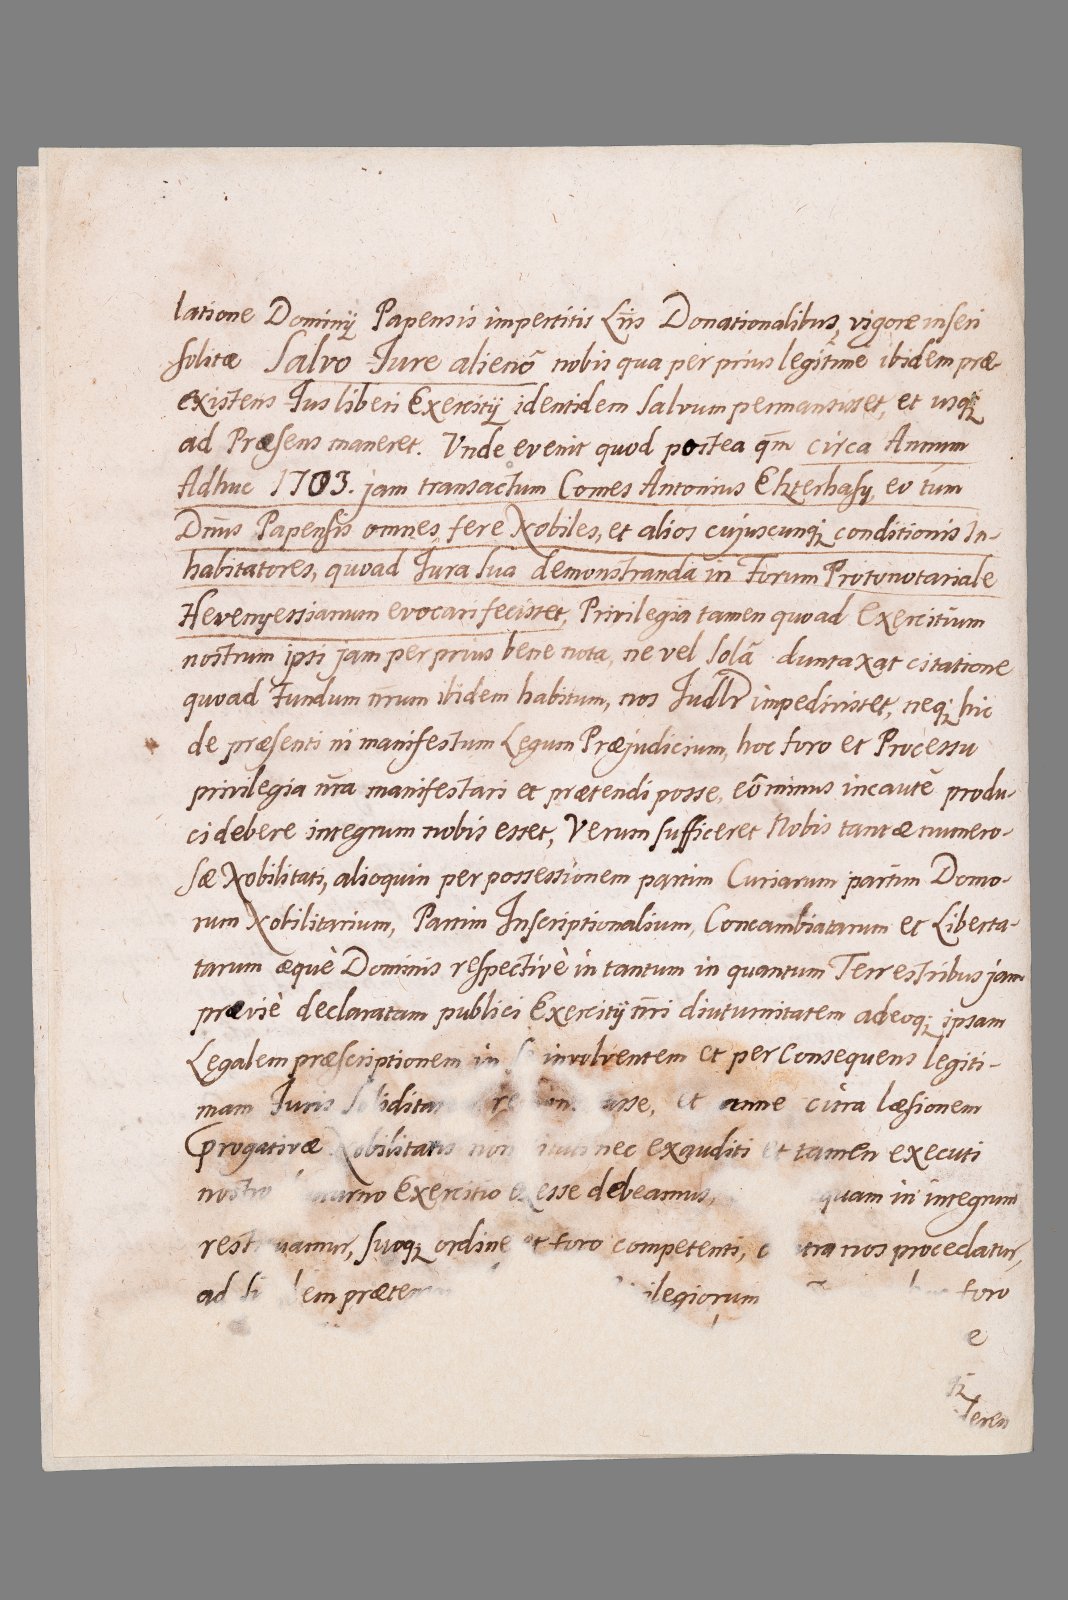 latione Dominÿ Papensis impertitis Lr̃is Donationalibus, vigore inseri
solitæ Salvo Jure alienõ nobis qua per prius legitime ibidem præ-
existens Jus liberi Exercitÿ identidem salvum permansisset, et usq;
ad Præsens maneret. Unde evenit quod postea qm̃ circa Annum
Adhuc 1703. jam transactum Comes Antonius Ezterhasy, eo tum
Dn̄us Papensis omnes fere Nobiles, et alios cujuscunq; conditionis In-
habitatores, quoad Jura sua demonstranda in Forum Protonotariale
Hevenyessianum evocari fecisset, Privilegia tamen quoad Exercitium
nostrum ipsi jam per prius bene nota, ne vel solã duntaxat citatione
quoad Fundum nr̃um ibidem habitum, nos impedivisset, neq; hic
de præsenti ni manifestum Legum Præjudicium, hoc foro et Processu
privilegia nr̃a manifestari et prætendi posse, eõ minus incautè produ-
ci debere integrum nobis esset, Verum sufficeret Nobis tantæ numero-
sæ Nobilitati, alioquin per possessionem partim Curiarum partim Domo-
rum Nobilitarium, Partim Inscriptionalium, Concambiatarum et Liberta-
tarum æquè Dominis respectivè in tantum in quantum Terrestribus jam
præviè declaratam publici Exercitÿ nr̃i diuturnitatem adeoq; ipsam
Legalem præscriptionem in involventem et per Consequens legiti-
mam Juris et anne citra læsionem
progativæ Nobilitatis non nec exauditi et tamen executi
nostro Exercitio esse debeamus, quam in integrum
suoq; ordine et foro competenti, nos procedatur,
ad foro
e